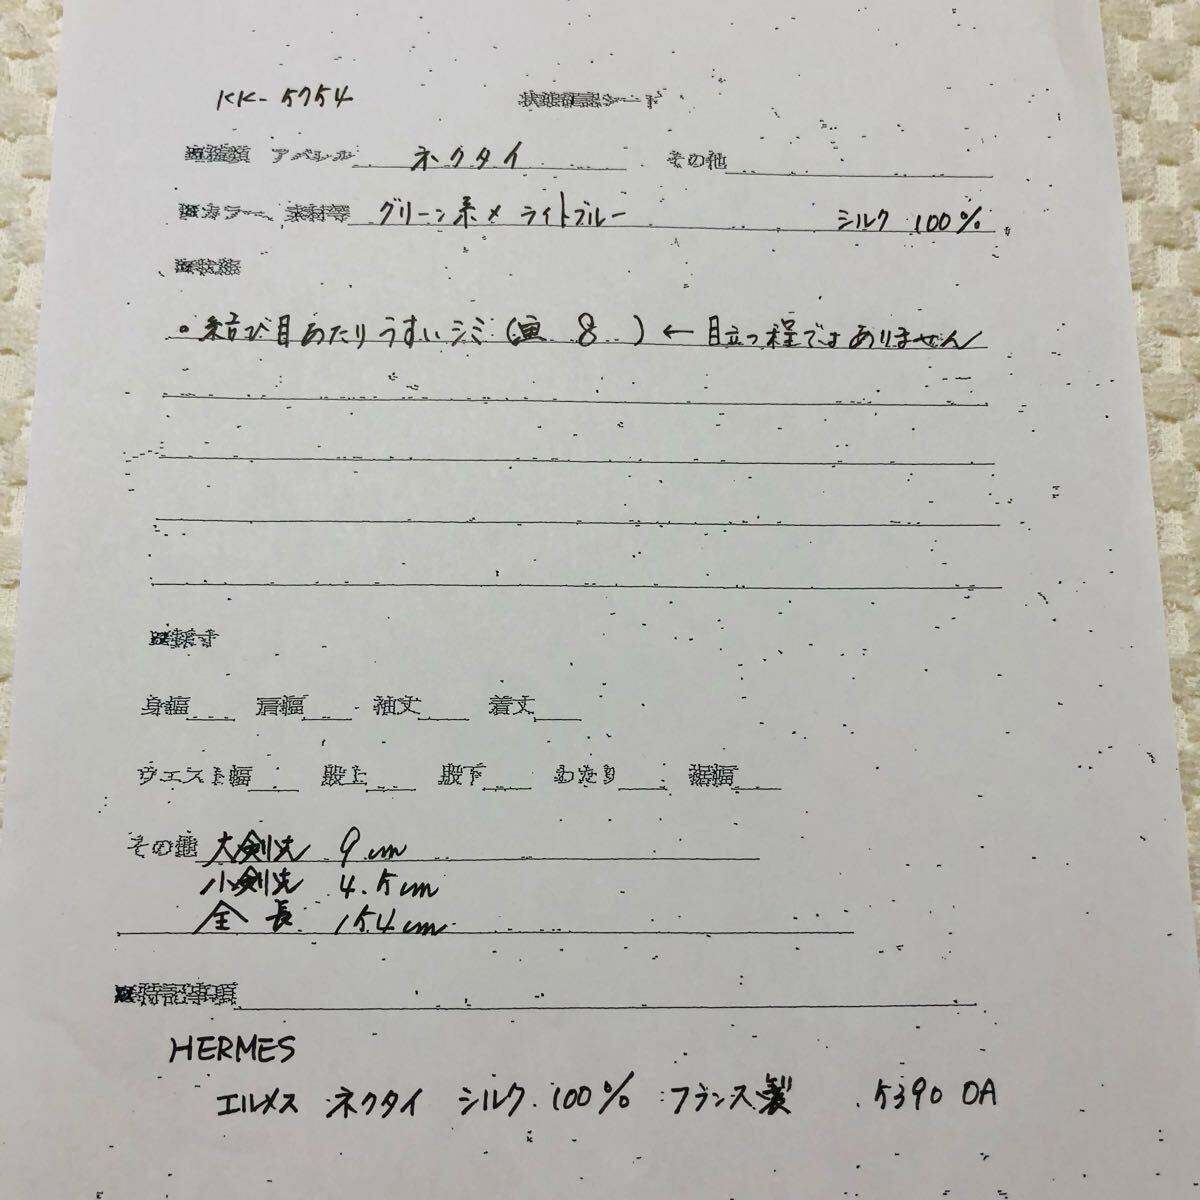 KK-5754 状態確認シート
※種類 アパレル ネクタイ その他
※カラー、素材等 グリーン系×ライトブルー シルク 100%
※状態
・結び目あたりうすいシミ(画 8 ) ← 目立つ程ではありません
※採寸
身幅 肩幅 袖丈 着丈
ウエスト幅 股上 股下 わたり 裾幅
その他 大剣先 9cm
小剣先 4.5cm
全長 154cm
※特記事項
HERMES
エルメス ネクタイ シルク 100% フランス製 5390 OA